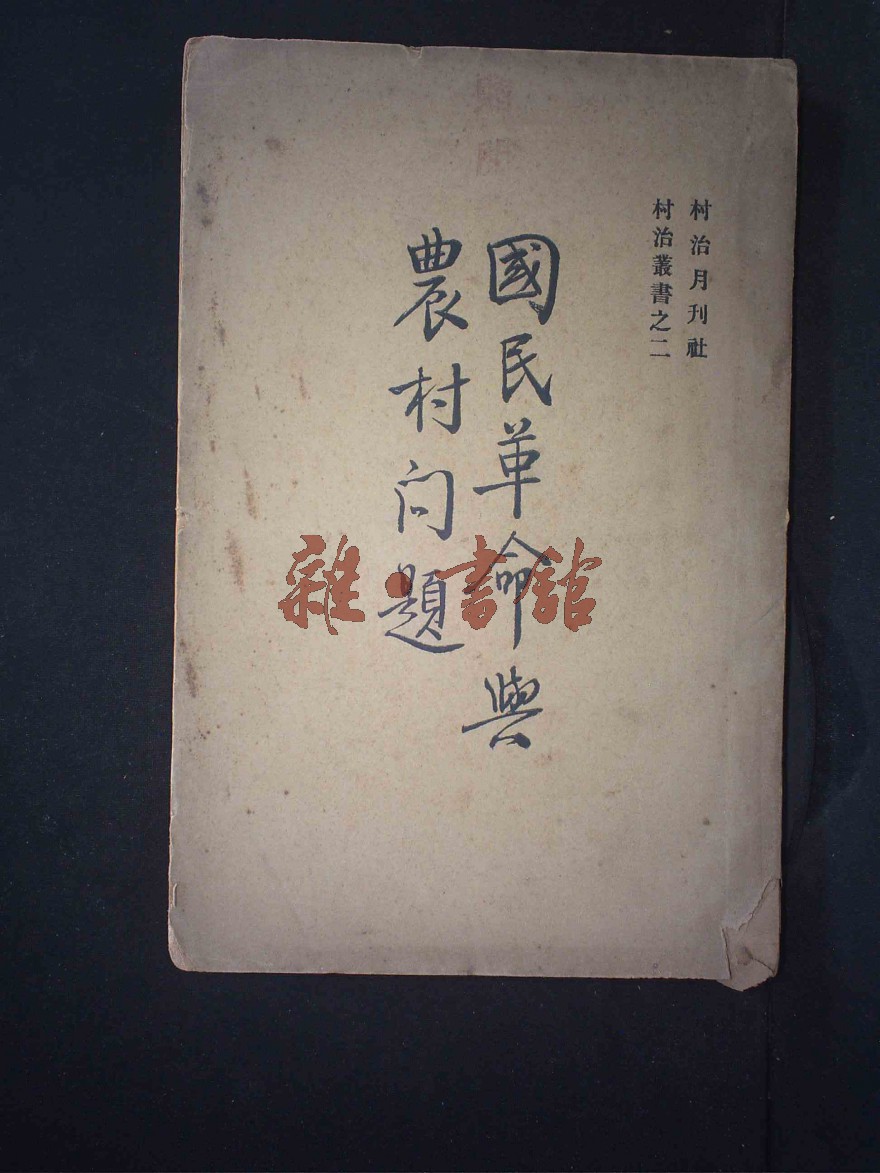 村治月刊社
村治叢書之二
國民革命與
農村问題
雜·書館